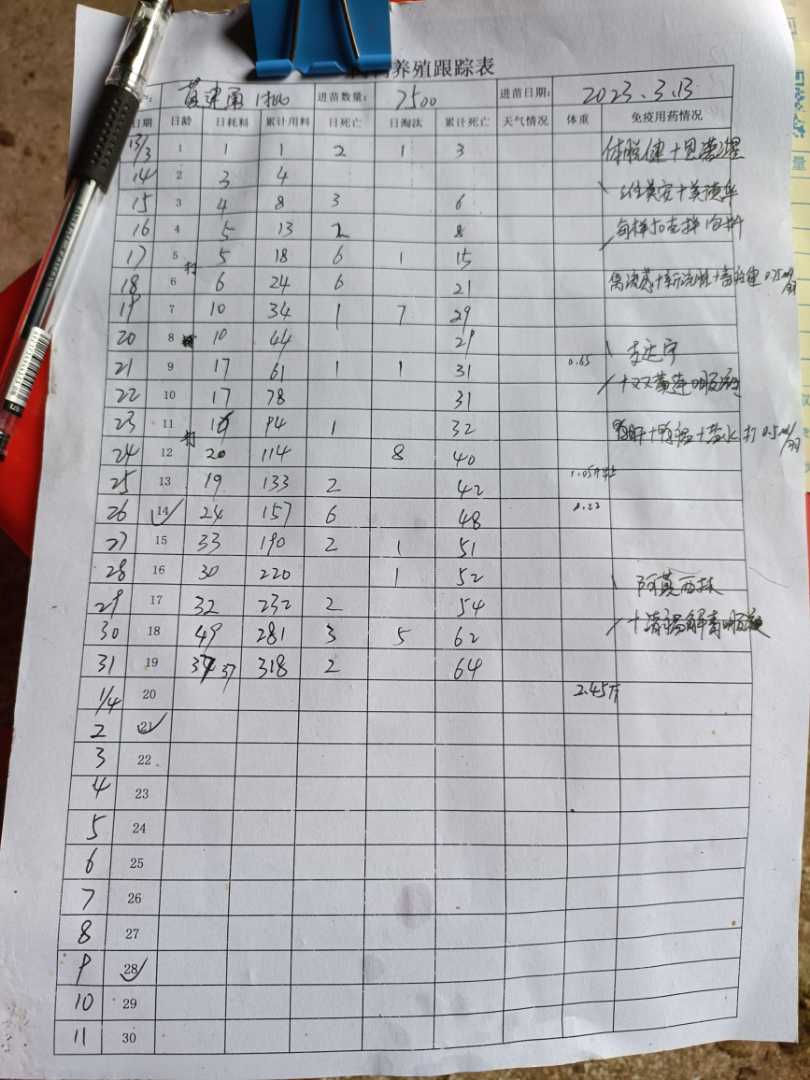 养殖跟踪表
进苗数量: 7500 进苗日期: 2023.3.13
日期 日龄 日耗料 累计用料 日死亡 日淘汰 累计死亡 天气情况 体重 免疫用药情况
13/3 1 1 1 2 1 3
14 2 3 4
15 3 4 8 3 6
16 4 5 13 2 8
17 5 打 5 18 6 1 15
18 6 6 24 6 21
19 7 10 34 1 7 29
20 8 10 44 29
21 9 17 61 1 1 31 0.65
22 10 17 78 31
23 11 94 1 32
24 12 打 20 114 8 40
25 13 19 133 2 42
26 14 24 157 6 48
27 15 33 190 2 1 51
28 16 30 220 1 52 阿莫西林
29 17 32 232 2 54
30 18 49 281 3 5 62
31 19 37 318 2 64
1/4 20 2.45斤
2 21
3 22
4 23
5 24
6 25
7 26
8 27
9 28
10 29
11 30